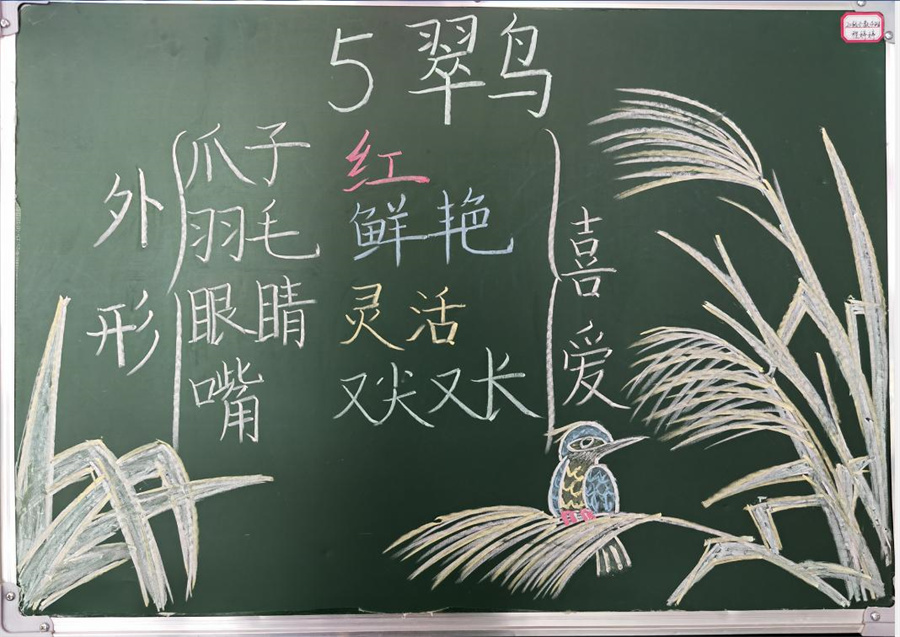 5 翠鸟
外形
爪子 红
羽毛 鲜艳
眼睛 灵活
嘴 又尖又长
喜爱